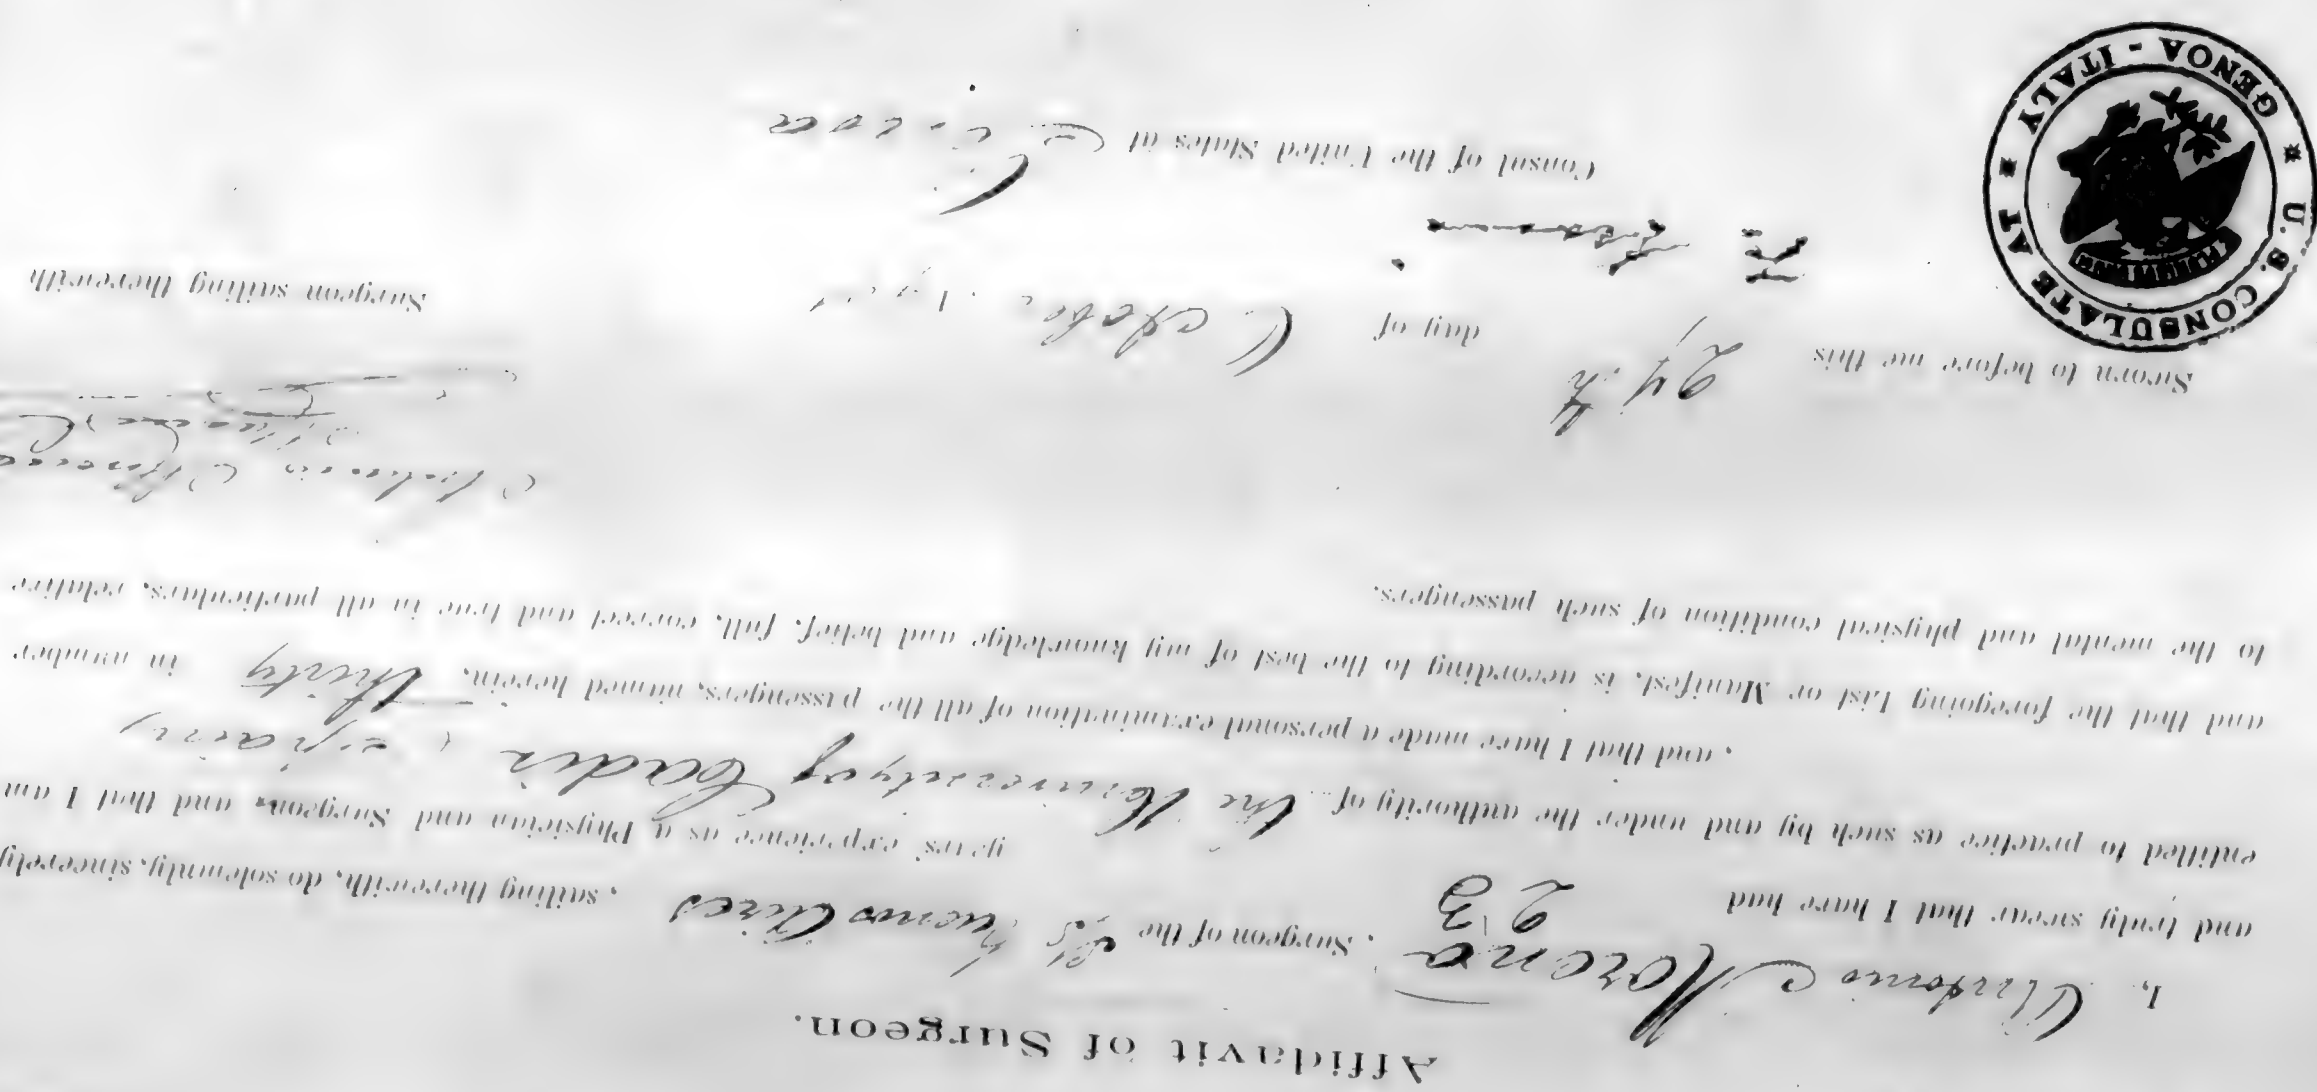 Affidavit of Surgeon.
I, Antonio Moreno, Surgeon of the S/S Buenos Aires, sailing therewith, do solemnly, sincerely
and truly swear that I have had 23 years' experience as a Physician and Surgeon, and that I am
entitled to practice as such by and under the authority of the University of Cadix (Spain)
, and that I have made a personal examination of all the passengers, named herein, thirty in number
and that the foregoing List or Manifest, is according to the best of my knowledge and belief, full, correct and true in all particulars, relative
to the mental and physical condition of such passengers.
Antonio Moreno
Surgeon sailing therewith
Sworn to before me this 24th day of October
Consul of the United States at Genoa
* U. S. CONSULATE AT * GENOA - ITALY